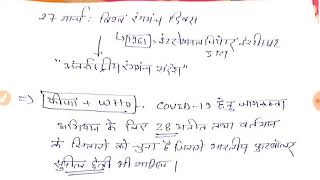 27 मार्च: विश्व रंगमंच दिवस
1961 इंटरनेशनल थिएटर इंस्टीट्यूट
द्वारा
"अंतर्राष्ट्रीय रंगमंच संदेश"
⇒ फीफा + WHO .. COVID-19 हेतु जागरूकता
अभियान के लिए 28 अतीत तथा वर्तमान
के सितारों को चुना है जिसमें भारतीय फुटबॉलर
सुनील छेत्री भी शामिल।